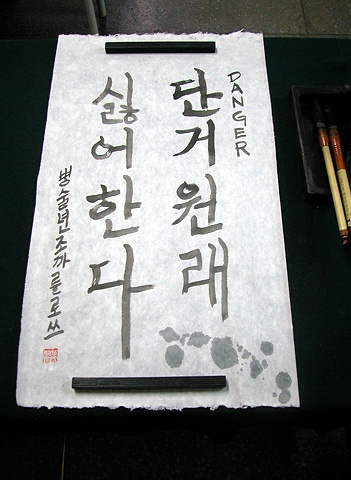 DANGER
단거원래
싫어한다
병술년조까를로쓰